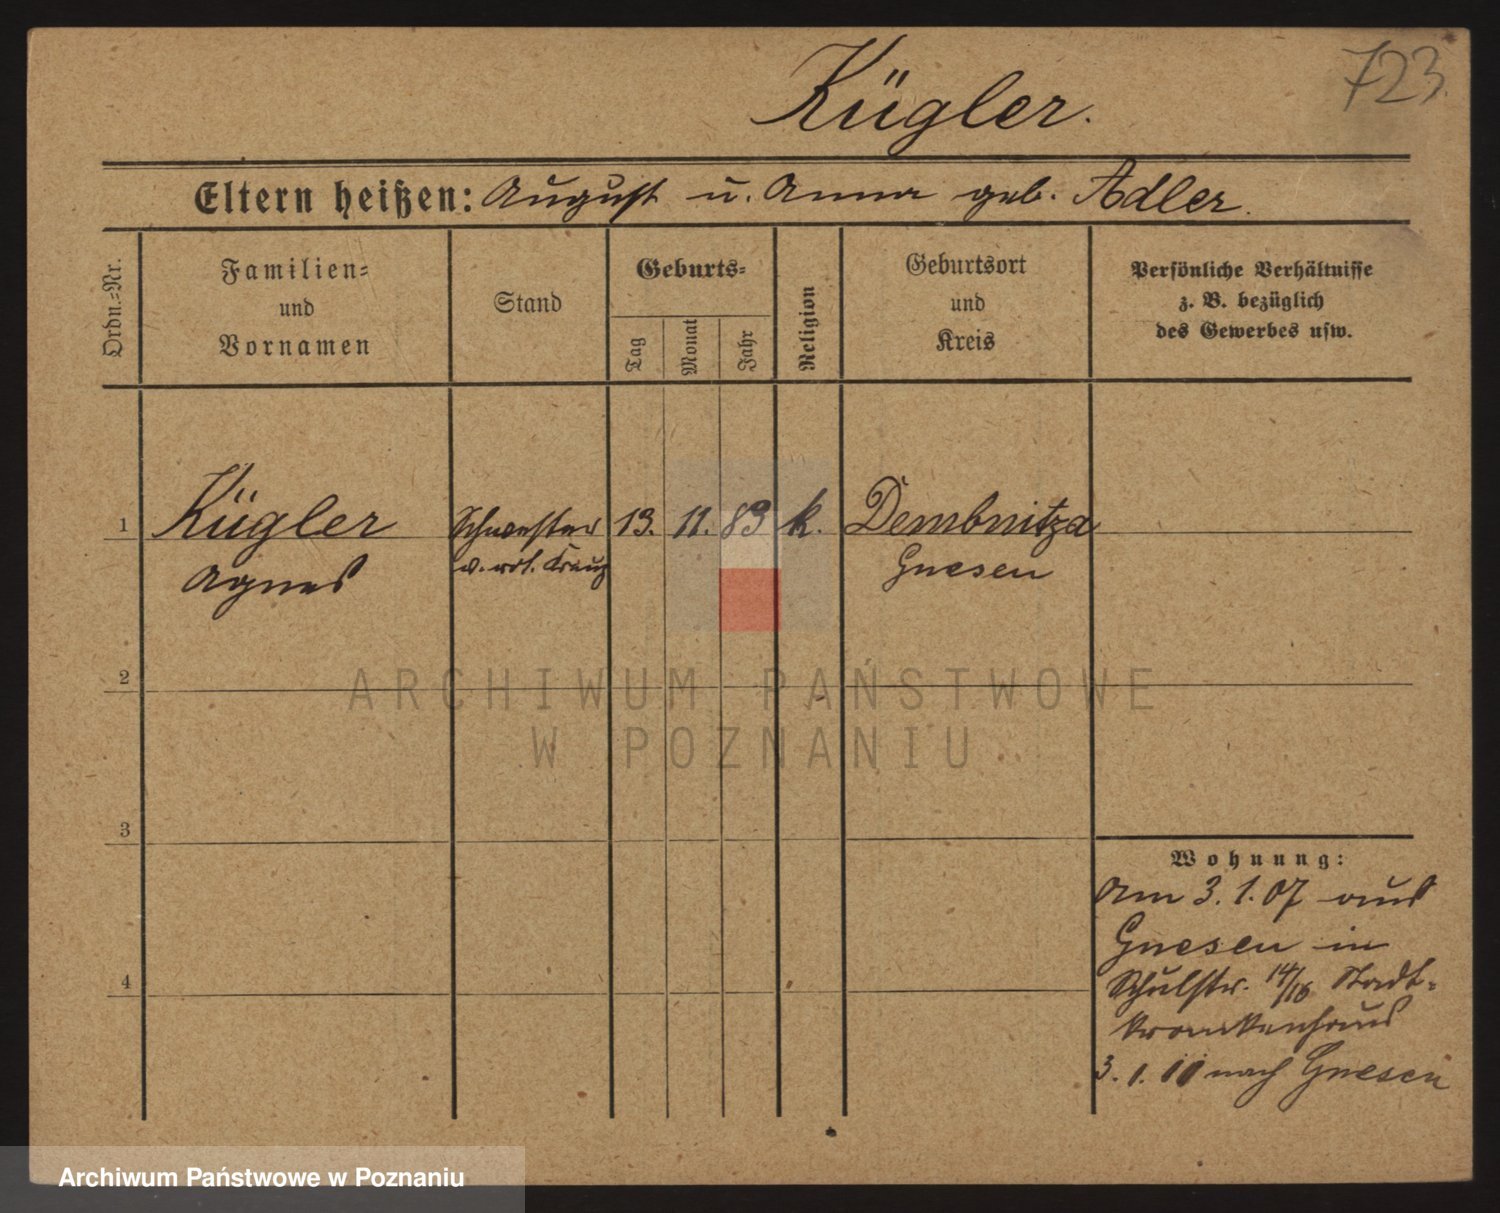 Kügler.
723.
Eltern heißen: August u. Anna geb. Adler.
Ordn.=Nr.
Familien=
und
Vornamen
Stand
Geburts=
Tag
Monat
Jahr
Religion
Geburtsort
und
Kreis
Persönliche Verhältnisse
z. B. bezüglich
des Gewerbes usw.
1
Kügler
Agnes
Schwester
v. rot. Kreuz
13. 11. 83
k.
Dembnitza
Gnesen
2
3
4
Wohnung:
Am 3.1.07 aus
Gnesen in
Schulstr. 14/16 Stadt-
krankenhaus
3.1.11 nach Gnesen
ARCHIWUM PAŃSTWOWE
W POZNANIU
Archiwum Państwowe w Poznaniu